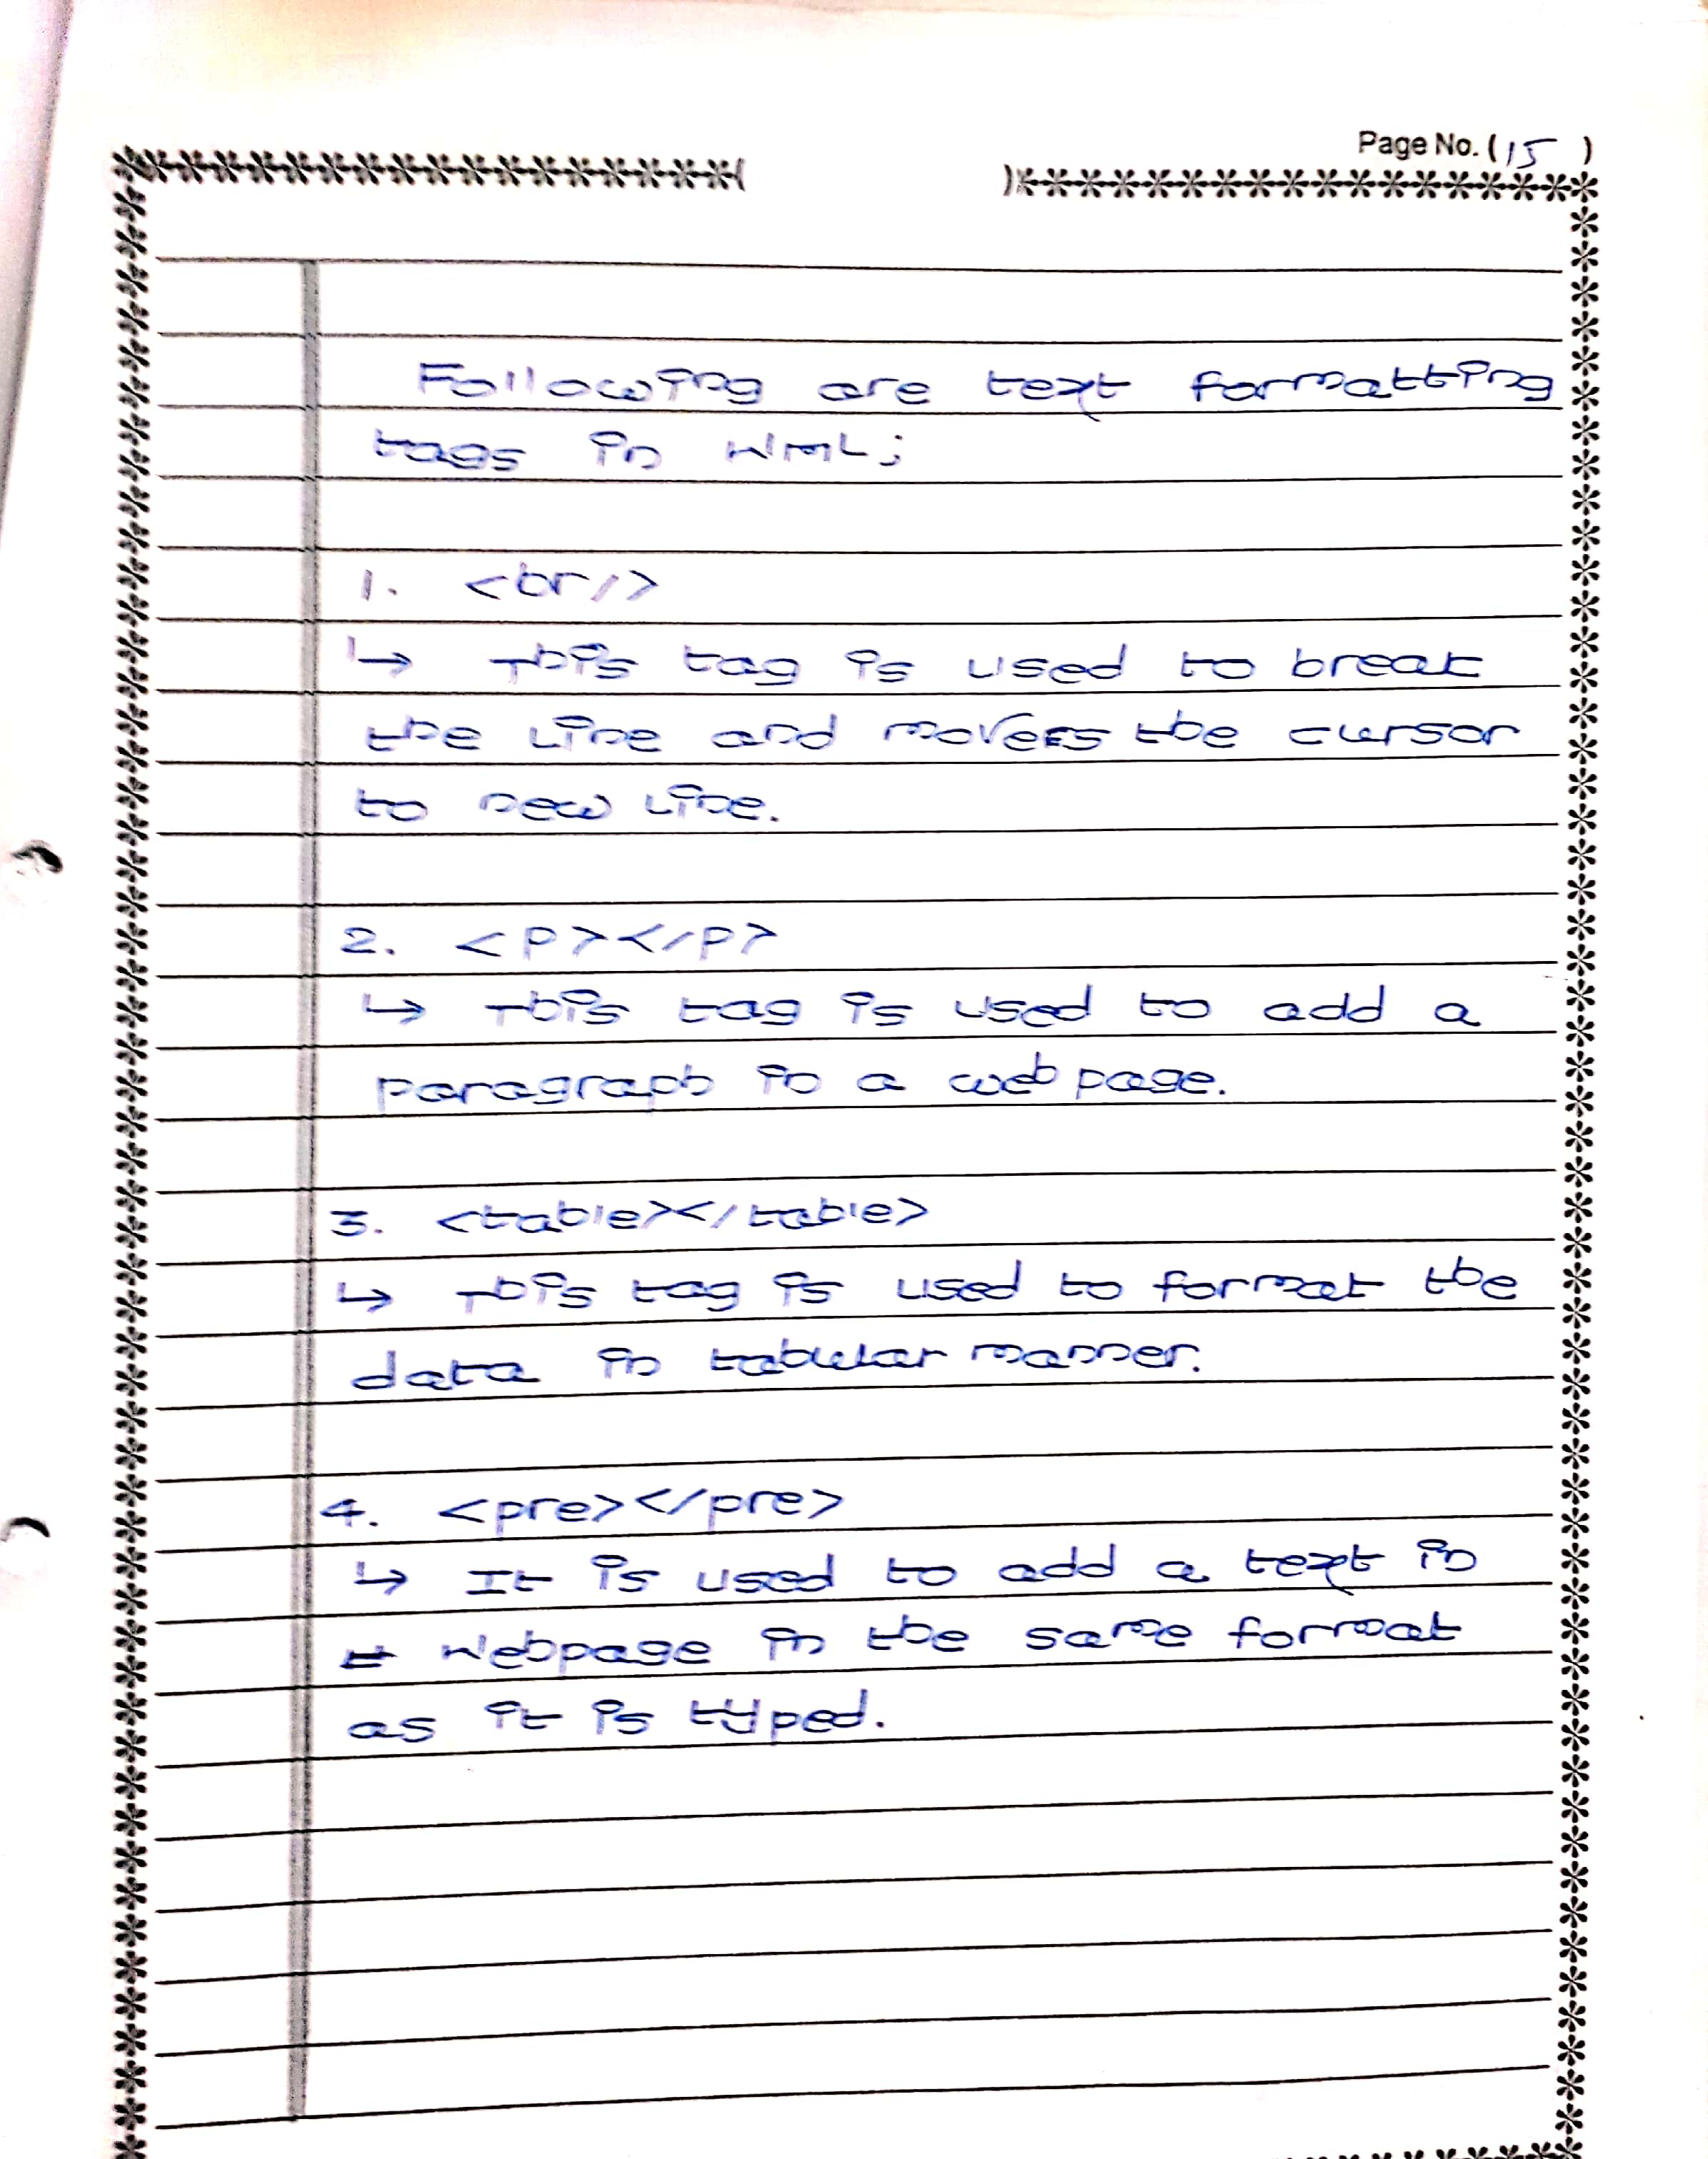 Page No. (15)
Following are text formatting
tags in WML;
1. <br/>
↳ This tag is used to break
the line and moves the cursor
to new line.
2. <P></P>
↳ This tag is used to add a
paragraph in a web page.
3. <table></table>
↳ This tag is used to format the
data in tabular manner.
4. <pre></pre>
↳ It is used to add a text in
webpage in the same format
as it is typed.